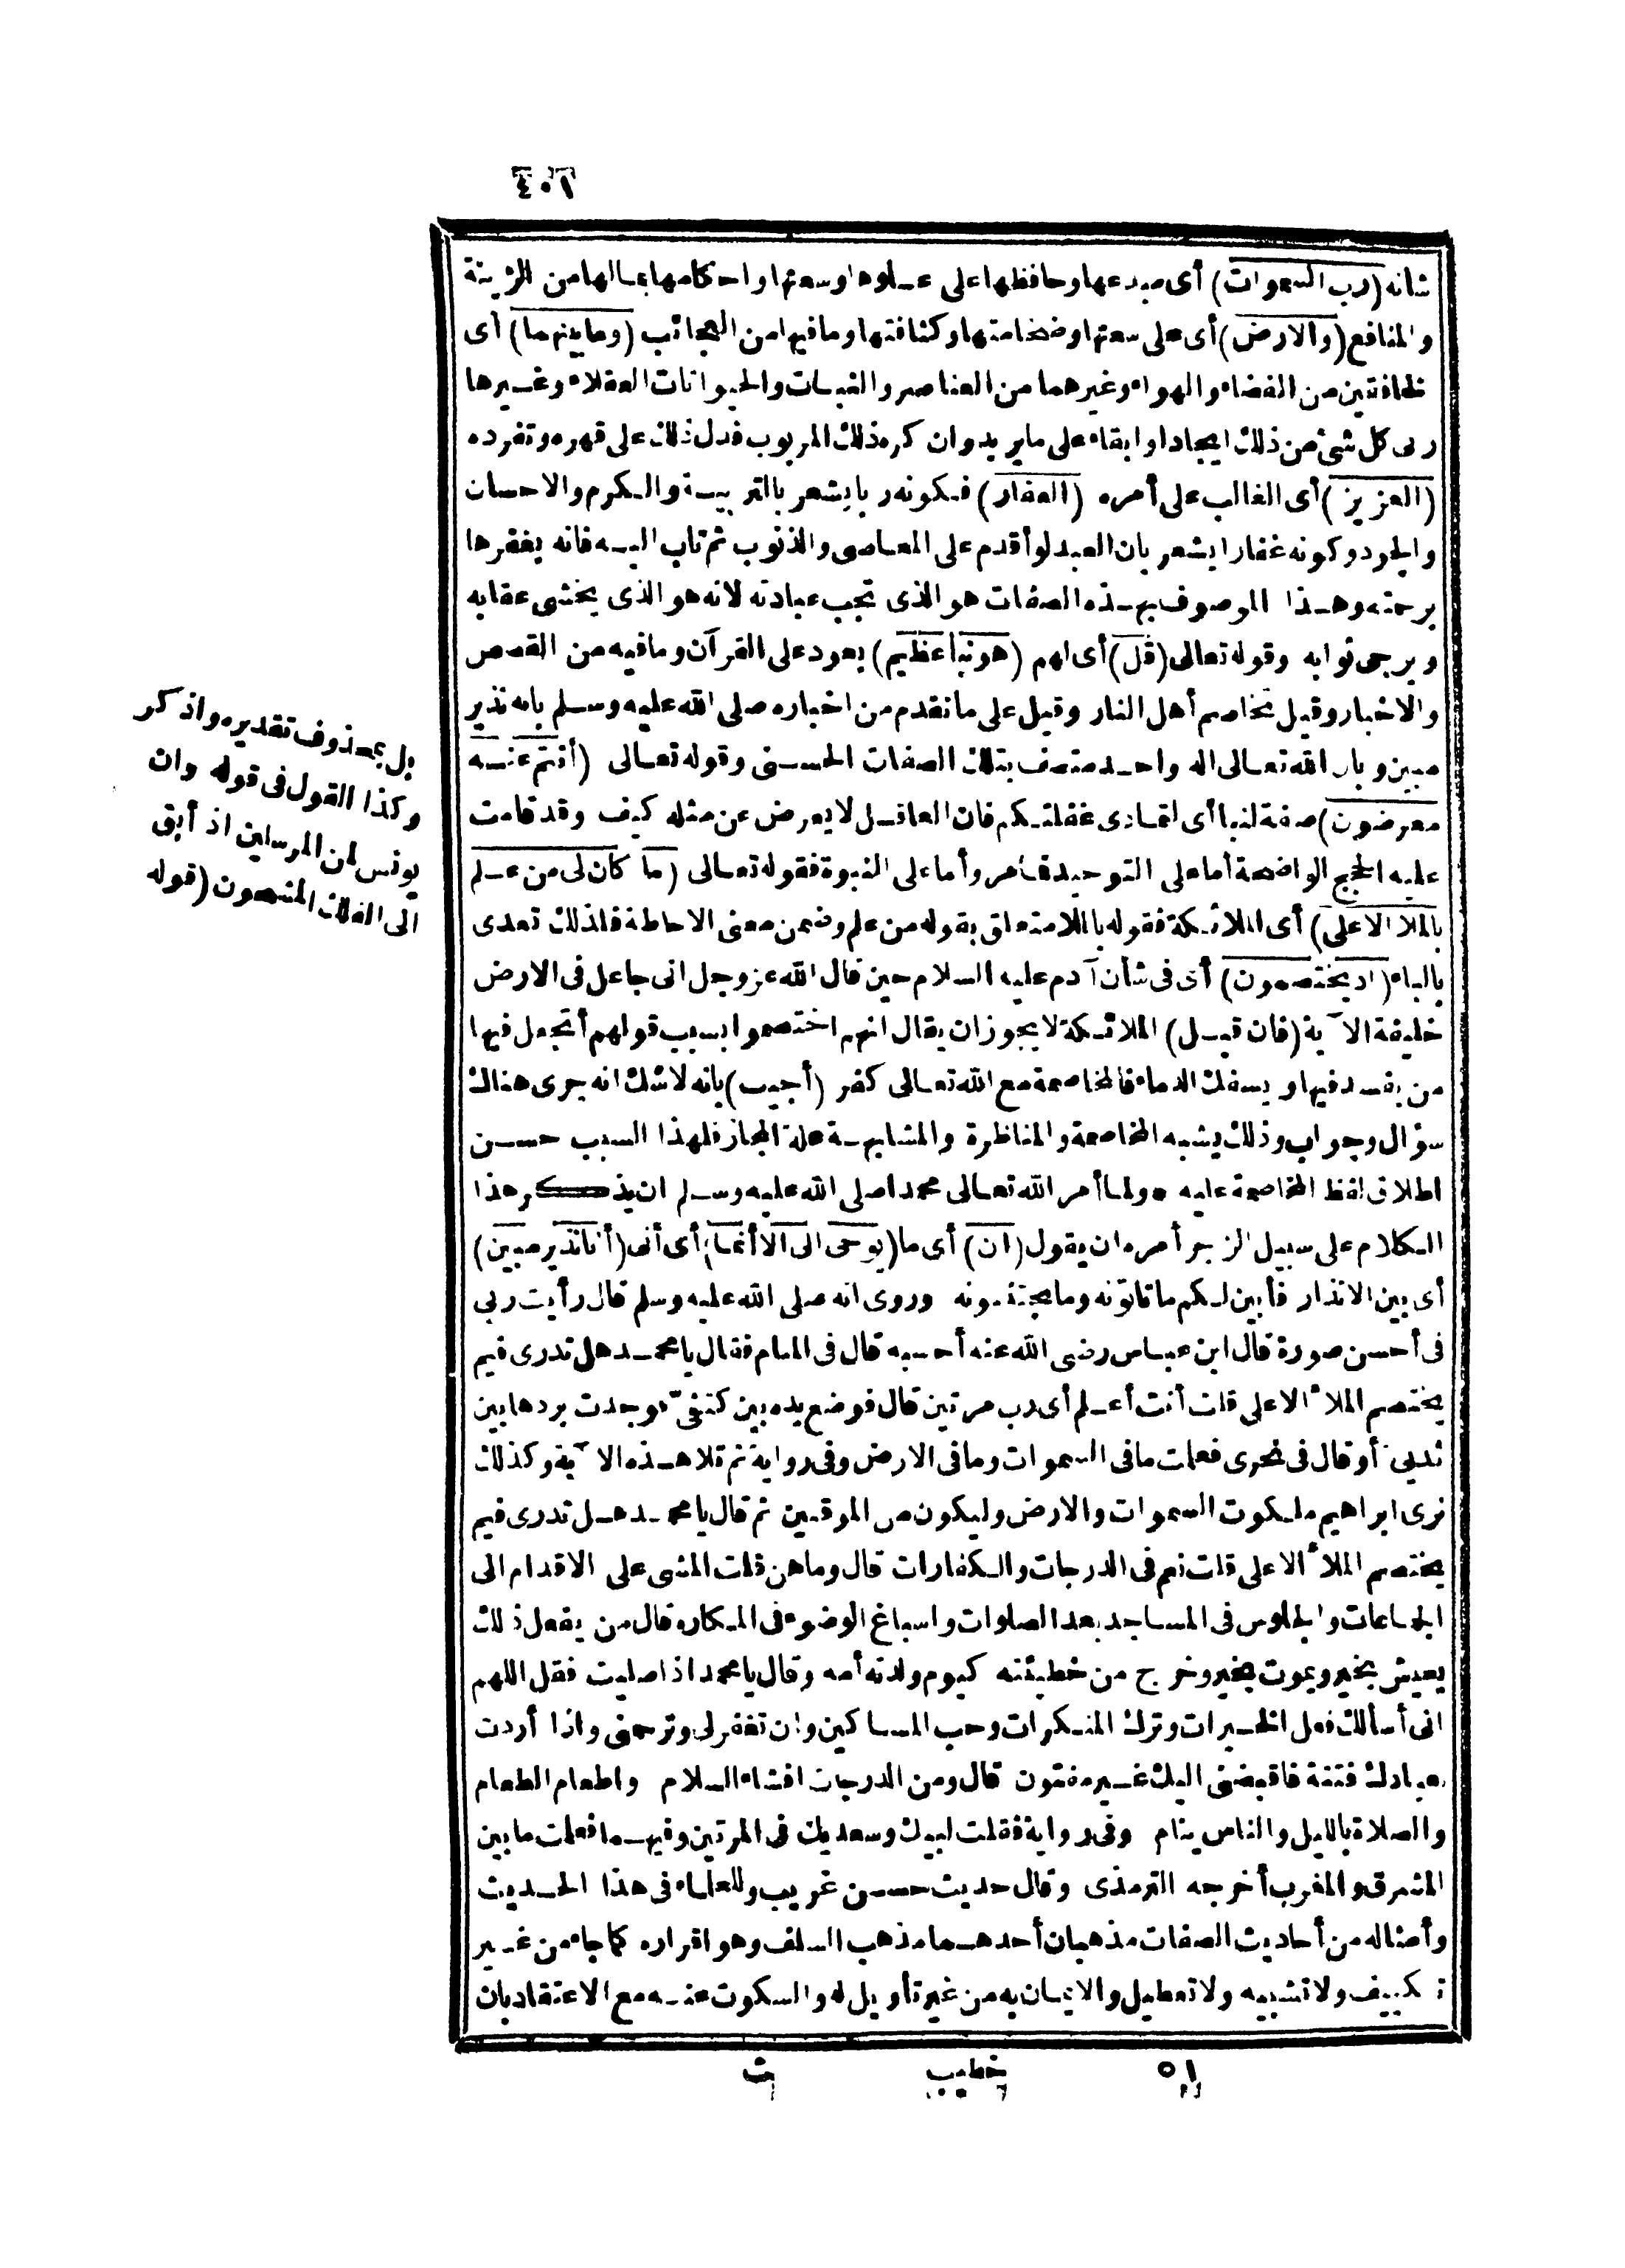 ٤٠١
شانه (رب السموات) أى مبدعها وحافظها على علوها وسعتها واحكامها بمالها من الزينة
والمنافع (والارض) أى على سعتها وضخامتها وكثافتها ومافيها من العجائب (وما بينهما) أى
الخافقين من الفضاء والهواء وغيرهما من العناصر والنباتات والحيوانات العقلاء وغيرها
ربى كل شئ من ذلك ايجادا وابقاء على مايريد وان كره ذلك المربوب فدل ذلك على قهره وتفرده
(العزيز) أى الغالب على أمره (الغفار) فكونه ربا يشعر بالتربية والكرم والاحسان
والجود وكونه غفارا يشعر بان العبد لو أقدم على المعاصى والذنوب ثم تاب اليه فانه يغفرها
برحمته وهذا الموصوف بهذه الصفات هو الذى تجب عبادته لانه هو الذى يخشى عقابه
ويرجى ثوابه وقوله تعالى (قل) أى لهم (هو نبأ عظيم) يعود على القرآن ومافيه من القصص
والاخبار وقيل تخاصم أهل النار وقيل على ماتقدم من اخباره صلى الله عليه وسلم بانه نذير
مبين وبان الله تعالى اله واحد متصف بتلك الصفات الحسنى وقوله تعالى (أنتم عنه
معرضون) صفة لنبا أى لتمادى غفلتكم فان العاقل لا يعرض عن مثله كيف وقد قامت
عليه الحجج الواضحة أما على التوحيد فما مر وأما على النبوة فقوله تعالى (ما كان لى من علم
بالملا الاعلى) أى الملائكة فقوله بالملا متعلق بقوله من علم وضمن معنى الاحاطة فلذلك تعدى
بالباء (اذ يختصمون) أى فى شأن آدم عليه السلام حين قال الله عز وجل انى جاعل فى الارض
خليفة الآية (فان قيل) الملائكة لا يجوز ان يقال انهم اختصموا بسبب قولهم أتجعل فيها
من يفسد فيها ويسفك الدماء فالمخاصمة مع الله تعالى كفر (أجيب) بانه لاشك انه جرى هناك
سؤال وجواب وذلك يشبه المخاصمة والمناظرة والمشابهة علة المجاز فلهذا السبب حسن
اطلاق لفظ المخاصمة عليه ولما أمر الله تعالى محمدا صلى الله عليه وسلم ان يذكر هذا
الكلام على سبيل الزجر أمره ان يقول (ان) أى ما (يوحى الى الا أنما) أى أنى (أنا نذير مبين)
أى بين الانذار فأبين لكم ماتأتونه وماتجتنبونه وروى انه صلى الله عليه وسلم قال رأيت ربى
فى أحسن صورة قال ابن عباس رضى الله عنه أحسبه قال فى المنام فقال يا محمد هل تدرى فيم
يختصم الملأ الاعلى قلت أنت أعلم أى رب مرتين قال فوضع يده بين كتفىّ فوجدت بردها بين
ثديى أو قال فى نحرى فعلمت مافى السموات ومافى الارض وفى رواية ثم تلا هذه الآية وكذلك
نرى ابراهيم ملكوت السموات والارض وليكون من الموقنين ثم قال يا محمد هل تدرى فيم
يختصم الملأ الاعلى قلت نعم فى الدرجات والكفارات قال وماهن قلت المشى على الاقدام الى
الجماعات والجلوس فى المساجد بعد الصلوات واسباغ الوضوء فى المكاره قال من يفعل ذلك
يعيش بخير ويموت بخير وخرج من خطيئته كيوم ولدته أمه وقال يا محمد اذا صليت فقل اللهم
انى أسألك فعل الخيرات وترك المنكرات وحب المساكين وان تغفر لى وترحمنى واذا أردت
بعبادك فتنة فاقبضنى اليك غير مفتون قال ومن الدرجات افشاء السلام واطعام الطعام
والصلاة بالليل والناس ينام وفى رواية فقلت لبيك وسعديك فى المرتين وفيهما فعلمت مابين
المشرق والمغرب أخرجه الترمذى وقال حديث حسن غريب وللعلماء فى هذا الحديث
وأمثاله من أحاديث الصفات مذهبان أحدهما مذهب السلف وهو اقراره كما جاء من غير
تكييف ولا تشبيه ولا تعطيل والايمان به من غير تأويل له والسكوت عنه مع الاعتقاد بان
بل بمحذوف تقديره واذكر
وكذا القول فى قوله وان
يونس لمن المرسلين اذ أبق
الى الفلك المشحون (قوله
٥١ خطيب ث